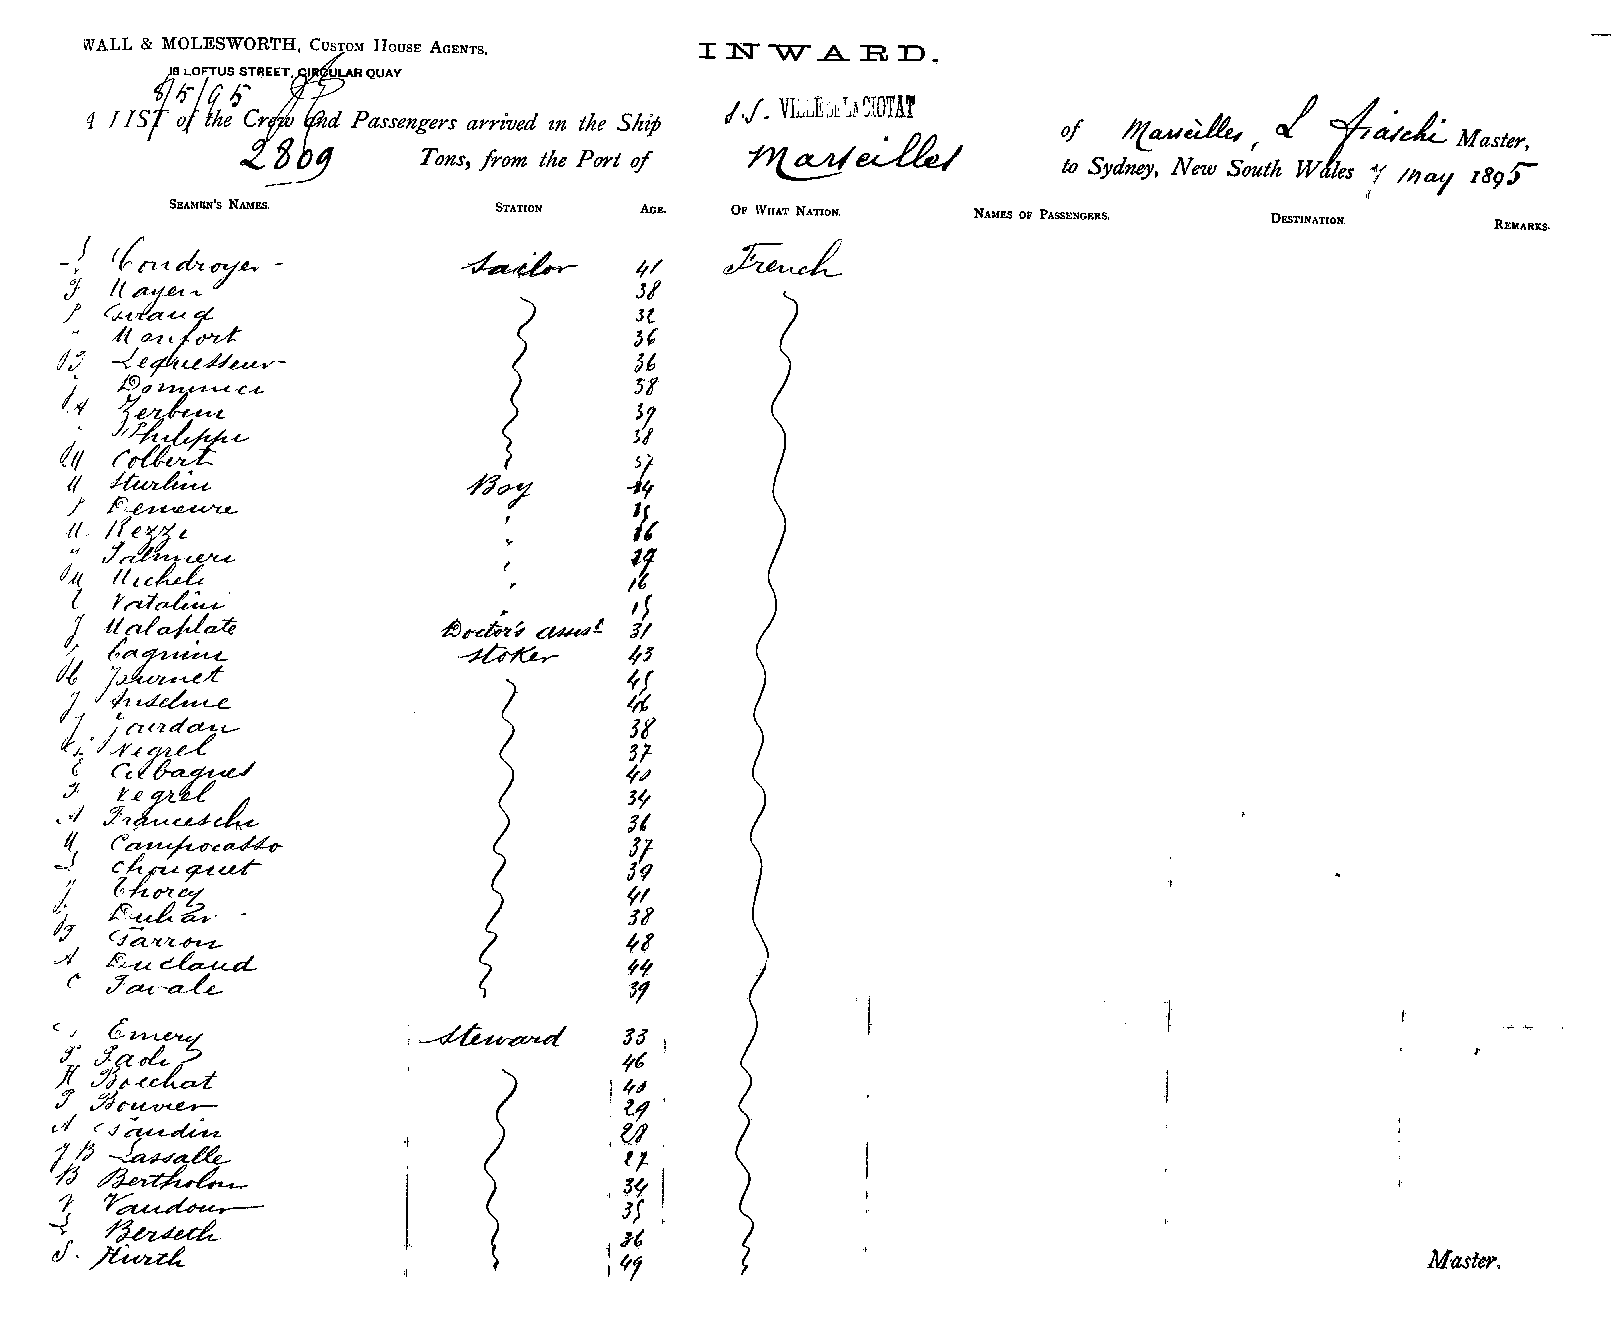 WALL & MOLESWORTH, CUSTOM HOUSE AGENTS.
18 LOFTUS STREET, CIRCULAR QUAY
8/5/95
INWARD.
A LIST of the Crew and Passengers arrived in the Ship S.S. VILLE DE LA CIOTAT of Marseilles, L Fiaschi Master,
2809 Tons, from the Port of Marseilles to Sydney, New South Wales 7 May 1895
SEAMEN'S NAMES. STATION AGE. OF WHAT NATION. NAMES OF PASSENGERS. DESTINATION. REMARKS.
Condroyer - Sailor 41 French
F Mayen 38
Giraud 32
" Monfort 36
Lequesseur 36
Dominici 38
Zerbini 39
Philippi 38
Colbert 37
M Sturlini Boy 14
P Demeure " 15
M. Rezzi " 16
" Palmieri " 17
Micheli " 16
Natalini " 15
J Malaplate Doctor's assist 31
Cagnini Stoker 43
Journet 45
J Anselme 46
J Jourdan 38
Negrel 37
E Cabagnes 40
F Negrel 34
A Franceschi 36
M Campocasso 37
L Chouquet 39
J Thorey 41
Duhar - 38
Garron 48
A Duclaud 44
C Favale 39
Emery Steward 33
F. Padi 46
H Boechat 40
P Bouvier 29
A Gaudin 28
J B Lassalle 27
B Bertholon 34
V Vaudour 35
L Berseth 36
S. Hurth 49
Master.